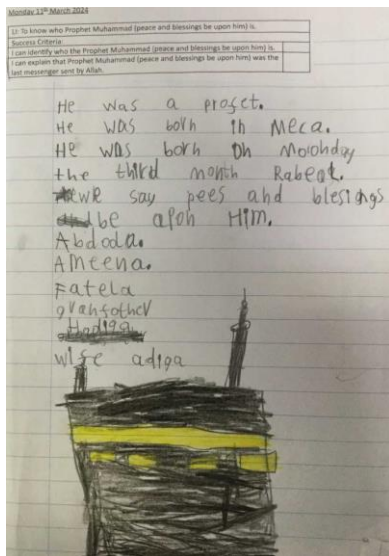 Monday 11th March 2024
LI: To know who Prophet Muhammad (peace and blessings be upon him) is.
Success Criteria:
I can identify who the Prophet Muhammad (peace and blessings be upon him) is.
I can explain that Prophet Muhammad (peace and blessings be upon him) was the
last messenger sent by Allah.
He was a profet.
He was born in Meca.
He was born on
the third month
we say pees and blesings
be apon Him.
Abdoda.
Ameena.
Fatela
granfother
Hadiga
wife adiga